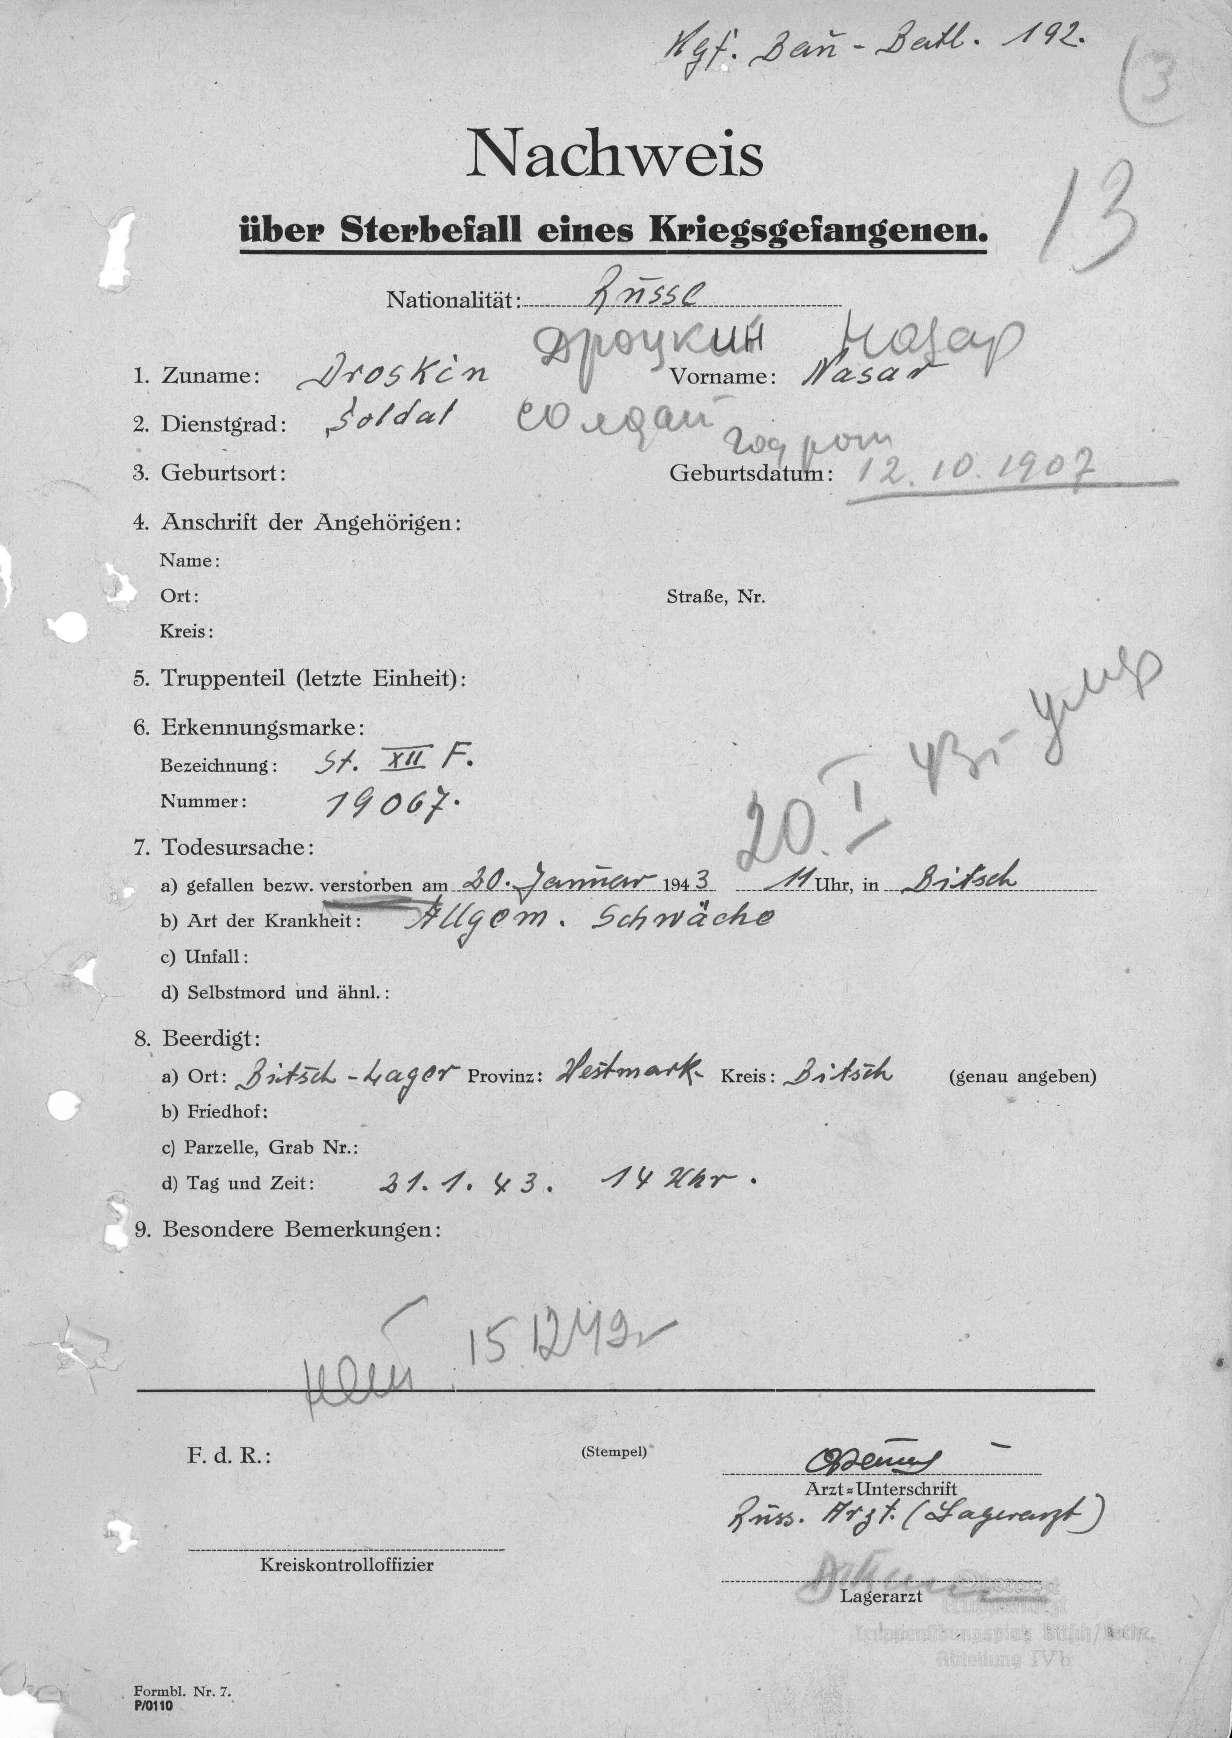 Kgf. Baŭ - Batl. 192.
3
Nachweis
13
über Sterbefall eines Kriegsgefangenen.
Nationalität: Rŭsse
Дроцкин Назар
1. Zuname: Droskin Vorname: Nasar
2. Dienstgrad: Soldat солдат
год рож
3. Geburtsort: Geburtsdatum: 12.10.1907
4. Anschrift der Angehörigen:
Name:
Ort: Straße, Nr.
Kreis:
5. Truppenteil (letzte Einheit):
6. Erkennungsmarke:
Bezeichnung: St. XII F.
Nummer: 19067.
20. I 43г умер
7. Todesursache:
a) gefallen bezw. verstorben am 20. Janŭar 1943 11 Uhr, in Bitsch
b) Art der Krankheit: Allgem. Schwäche
c) Unfall:
d) Selbstmord und ähnl.:
8. Beerdigt:
a) Ort: Bitsch - Lager Provinz: Westmark Kreis: Bitsch (genau angeben)
b) Friedhof:
c) Parzelle, Grab Nr.:
d) Tag und Zeit: 21. 1. 43. 14 Uhr.
9. Besondere Bemerkungen:
15.12.42г
F. d. R.: (Stempel)
Arzt=Unterschrift
Rŭss. Arzt. (Lagerarzt)
Kreiskontrolloffizier
Lagerarzt
Abteilung IVb
Formbl. Nr. 7.
P/0110